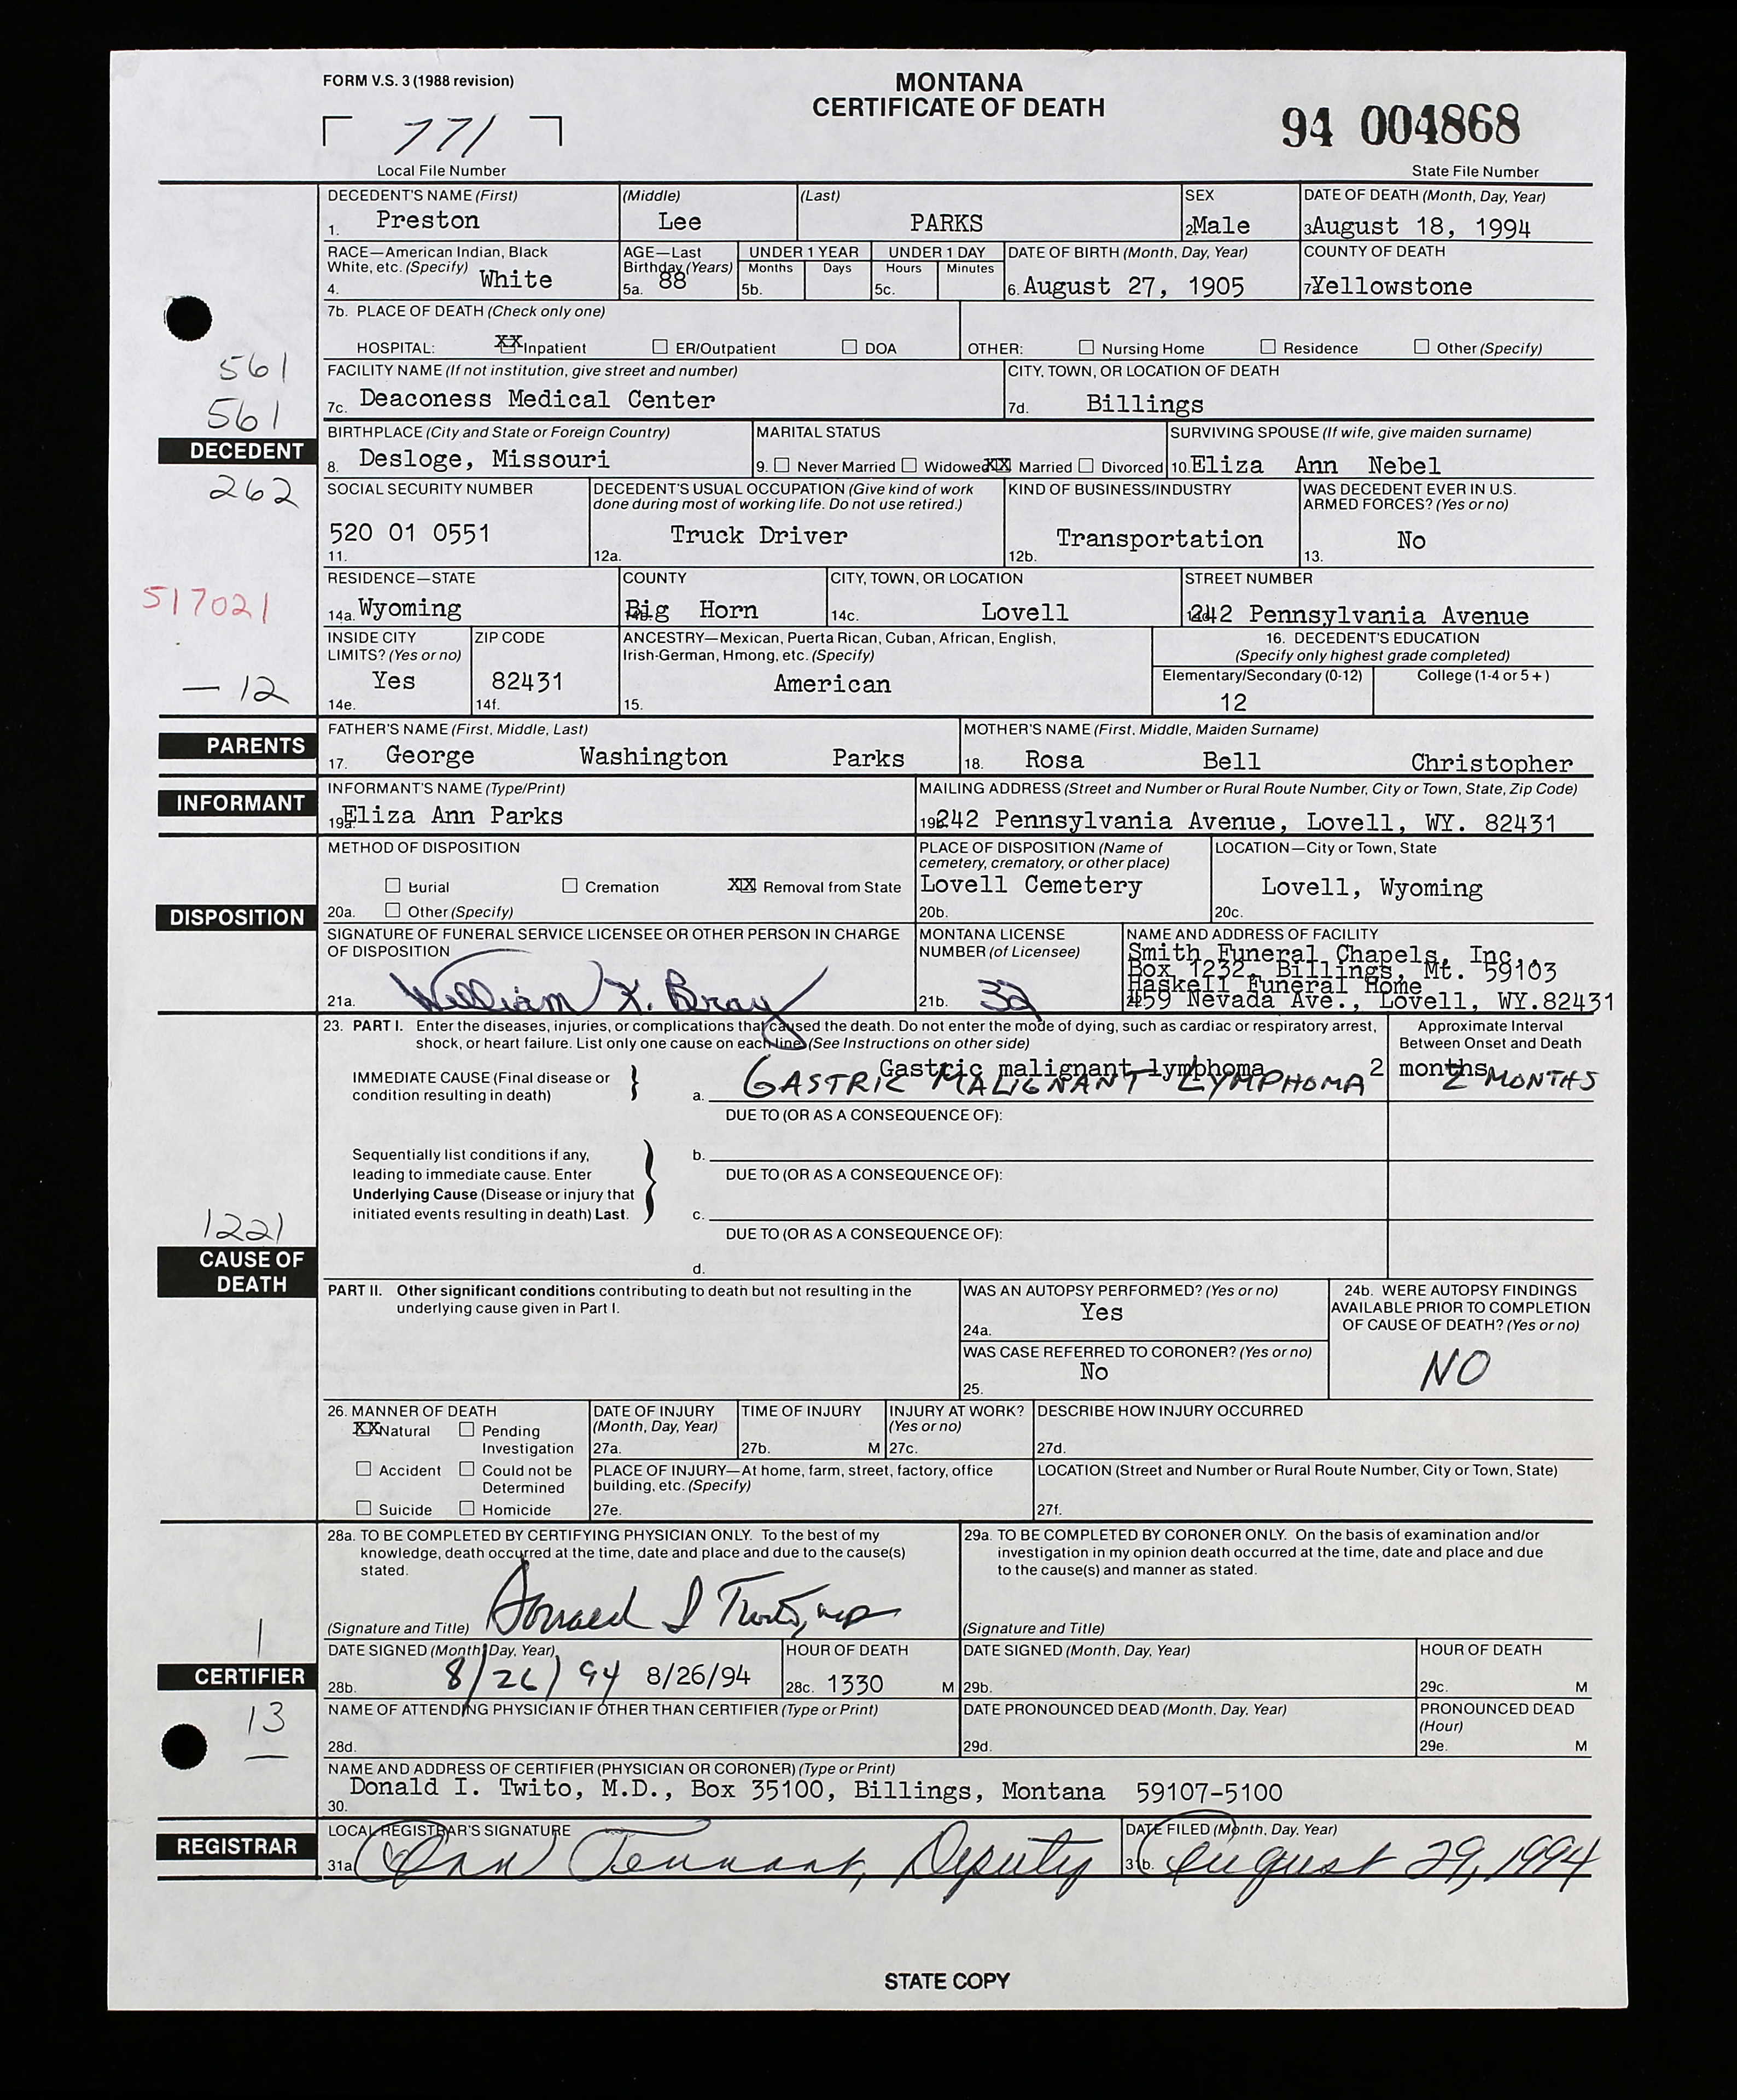 FORM V.S. 3 (1988 revision)
MONTANA
CERTIFICATE OF DEATH
771
94 004868
Local File Number
State File Number
DECEDENT'S NAME (First) (Middle) (Last) SEX DATE OF DEATH (Month, Day, Year)
1. Preston Lee PARKS 2. Male 3. August 18, 1994
RACE—American Indian, Black AGE—Last UNDER 1 YEAR UNDER 1 DAY DATE OF BIRTH (Month, Day, Year) COUNTY OF DEATH
White, etc. (Specify) Birthday (Years) Months Days Hours Minutes
4. White 5a. 88 5b. 5c. 6. August 27, 1905 7. Yellowstone
7b. PLACE OF DEATH (Check only one)
HOSPITAL: XX Inpatient ☐ ER/Outpatient ☐ DOA OTHER: ☐ Nursing Home ☐ Residence ☐ Other (Specify)
561
FACILITY NAME (If not institution, give street and number) CITY, TOWN, OR LOCATION OF DEATH
7c. Deaconess Medical Center 7d. Billings
561
DECEDENT
BIRTHPLACE (City and State or Foreign Country) MARITAL STATUS SURVIVING SPOUSE (If wife, give maiden surname)
8. Desloge, Missouri 9. ☐ Never Married ☐ Widowed XX Married ☐ Divorced 10. Eliza Ann Nebel
262
SOCIAL SECURITY NUMBER DECEDENT'S USUAL OCCUPATION (Give kind of work KIND OF BUSINESS/INDUSTRY WAS DECEDENT EVER IN U.S.
done during most of working life. Do not use retired.) ARMED FORCES? (Yes or no)
520 01 0551 Truck Driver Transportation No
11. 12a. 12b. 13.
517021
RESIDENCE—STATE COUNTY CITY, TOWN, OR LOCATION STREET NUMBER
14a. Wyoming Big Horn 14c. Lovell 242 Pennsylvania Avenue
INSIDE CITY ZIP CODE ANCESTRY—Mexican, Puerta Rican, Cuban, African, English, 16. DECEDENT'S EDUCATION
LIMITS? (Yes or no) Irish-German, Hmong, etc. (Specify) (Specify only highest grade completed)
Elementary/Secondary (0-12) College (1-4 or 5+)
— 12
Yes 82431 American 12
14e. 14f. 15.
PARENTS
FATHER'S NAME (First, Middle, Last) MOTHER'S NAME (First, Middle, Maiden Surname)
17. George Washington Parks 18. Rosa Bell Christopher
INFORMANT
INFORMANT'S NAME (Type/Print) MAILING ADDRESS (Street and Number or Rural Route Number, City or Town, State, Zip Code)
19a. Eliza Ann Parks 19b. 242 Pennsylvania Avenue, Lovell, WY. 82431
METHOD OF DISPOSITION PLACE OF DISPOSITION (Name of LOCATION—City or Town, State
cemetery, crematory, or other place)
☐ Burial ☐ Cremation XX Removal from State Lovell Cemetery Lovell, Wyoming
DISPOSITION
20a. ☐ Other (Specify) 20b. 20c.
SIGNATURE OF FUNERAL SERVICE LICENSEE OR OTHER PERSON IN CHARGE MONTANA LICENSE NAME AND ADDRESS OF FACILITY
OF DISPOSITION NUMBER (of Licensee)
Smith Funeral Chapels, Inc.,
Box 1232, Billings, Mt. 59103
Haskell Funeral Home
21a. William X. Bray 21b. 32 459 Nevada Ave., Lovell, WY.82431
23. PART I. Enter the diseases, injuries, or complications that caused the death. Do not enter the mode of dying, such as cardiac or respiratory arrest, Approximate Interval
shock, or heart failure. List only one cause on each line. (See Instructions on other side) Between Onset and Death
Gastric malignant lymphoma 2 months
IMMEDIATE CAUSE (Final disease or
condition resulting in death) a. GASTRIC MALIGNANT LYMPHOMA 2 MONTHS
DUE TO (OR AS A CONSEQUENCE OF):
Sequentially list conditions if any, b.
leading to immediate cause. Enter DUE TO (OR AS A CONSEQUENCE OF):
Underlying Cause (Disease or injury that
initiated events resulting in death) Last. c.
1221
DUE TO (OR AS A CONSEQUENCE OF):
CAUSE OF
DEATH
d.
PART II. Other significant conditions contributing to death but not resulting in the WAS AN AUTOPSY PERFORMED? (Yes or no) 24b. WERE AUTOPSY FINDINGS
underlying cause given in Part I. AVAILABLE PRIOR TO COMPLETION
24a. Yes OF CAUSE OF DEATH? (Yes or no)
WAS CASE REFERRED TO CORONER? (Yes or no)
25. No NO
26. MANNER OF DEATH DATE OF INJURY TIME OF INJURY INJURY AT WORK? DESCRIBE HOW INJURY OCCURRED
XX Natural ☐ Pending (Month, Day, Year) (Yes or no)
Investigation 27a. 27b. M 27c. 27d.
☐ Accident ☐ Could not be PLACE OF INJURY—At home, farm, street, factory, office LOCATION (Street and Number or Rural Route Number, City or Town, State)
Determined building, etc. (Specify)
☐ Suicide ☐ Homicide 27e. 27f.
28a. TO BE COMPLETED BY CERTIFYING PHYSICIAN ONLY. To the best of my 29a. TO BE COMPLETED BY CORONER ONLY. On the basis of examination and/or
knowledge, death occurred at the time, date and place and due to the cause(s) investigation in my opinion death occurred at the time, date and place and due
stated. to the cause(s) and manner as stated.
1
(Signature and Title) Donald I Twito, MD (Signature and Title)
DATE SIGNED (Month, Day, Year) HOUR OF DEATH DATE SIGNED (Month, Day, Year) HOUR OF DEATH
CERTIFIER
28b. 8/26/94 8/26/94 28c. 1330 M 29b. 29c. M
13
NAME OF ATTENDING PHYSICIAN IF OTHER THAN CERTIFIER (Type or Print) DATE PRONOUNCED DEAD (Month, Day, Year) PRONOUNCED DEAD
(Hour)
28d. 29d. 29e. M
NAME AND ADDRESS OF CERTIFIER (PHYSICIAN OR CORONER) (Type or Print)
30. Donald I. Twito, M.D., Box 35100, Billings, Montana 59107-5100
REGISTRAR
LOCAL REGISTRAR'S SIGNATURE DATE FILED (Month, Day, Year)
31a. Ann Tennant, Deputy 31b. August 29, 1994
STATE COPY